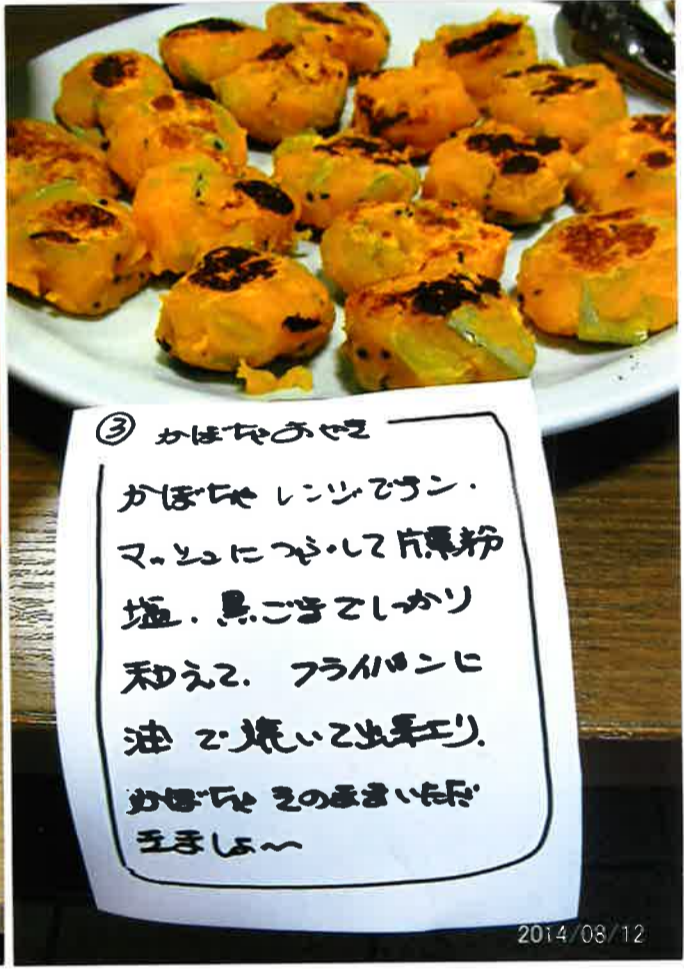 ③ かぼちゃおやき
かぼちゃ レンジでチン.
マッシュにつぶして片栗粉
塩. 黒ごまでしっかり
和えて. フライパンに
油で焼いて出来上り.
かぼちゃ そのままいただ
きましょ〜
2014/08/12